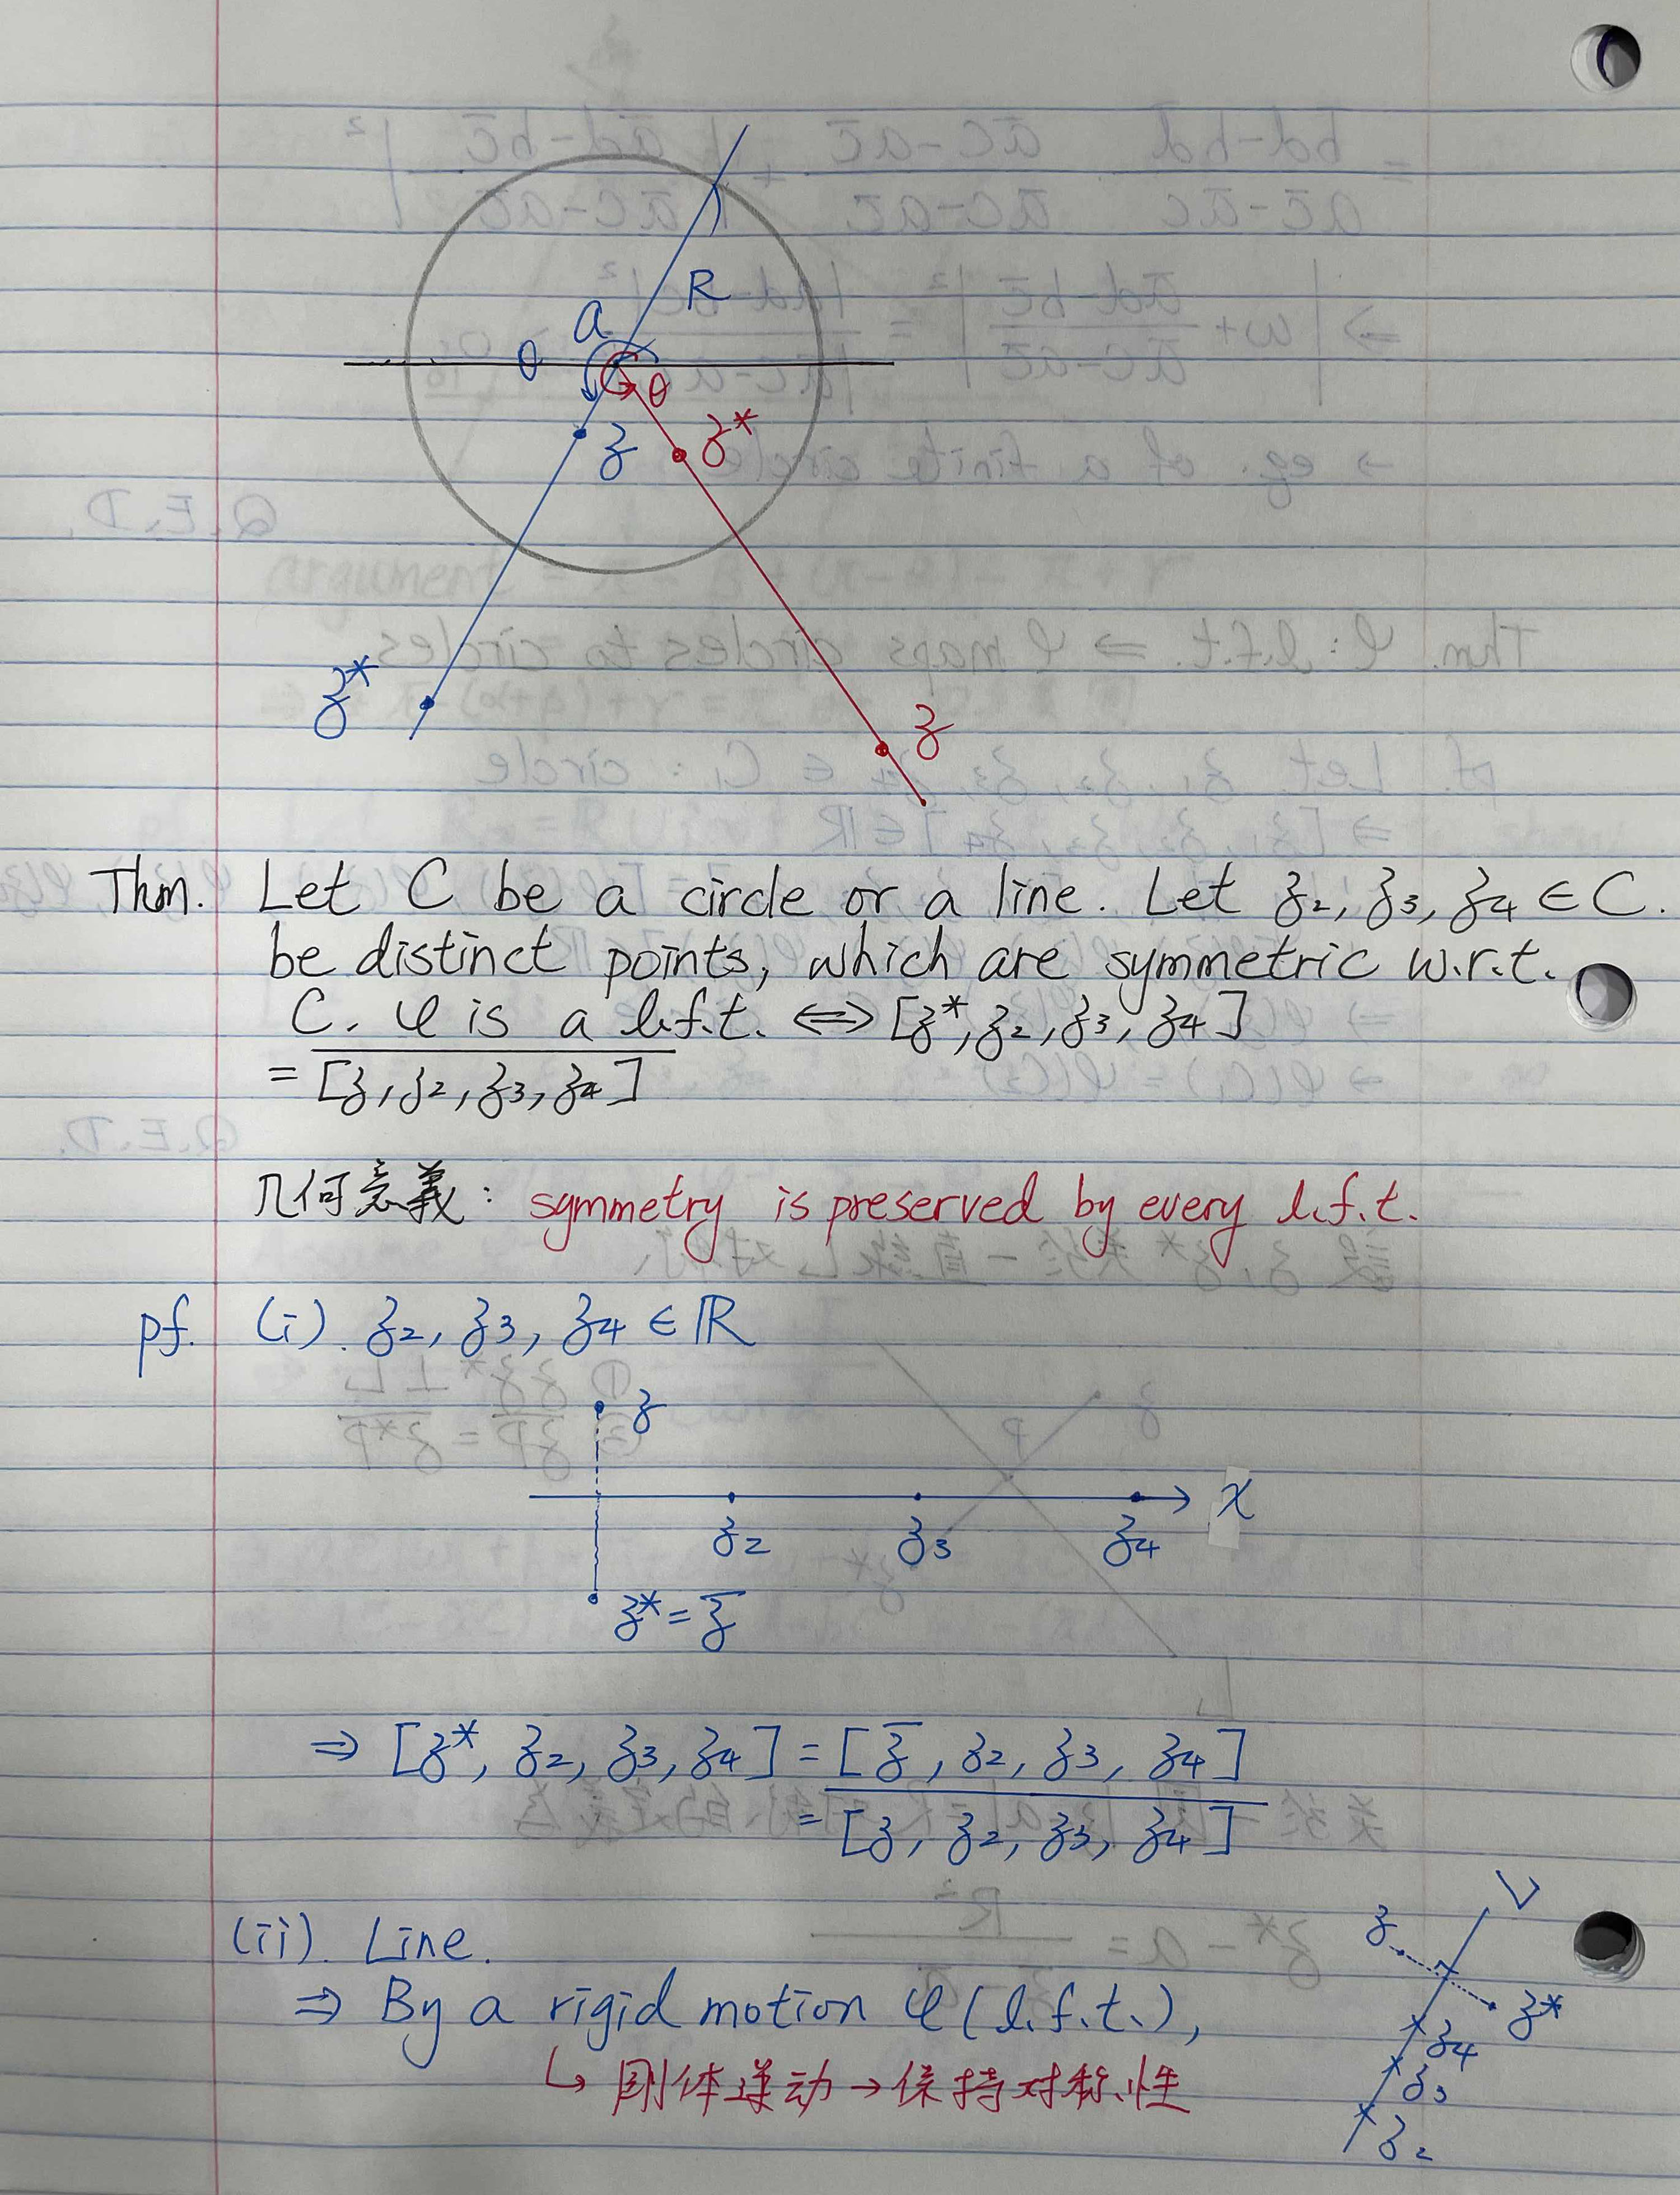 R
a
θ
θ
z
z*
z*
z
Thm. Let C be a circle or a line. Let z₂, z₃, z₄ ∈ C.
be distinct points, which are symmetric w.r.t.
C. φ is a l.f.t. ⇔ [z*, z₂, z₃, z₄]
= \overline{[z, z₂, z₃, z₄]}
几何意義: symmetry is preserved by every l.f.t.
pf. (i). z₂, z₃, z₄ ∈ ℝ
z
x
z₂ z₃ z₄
z* = \overline{z}
⇒ [z*, z₂, z₃, z₄] = [\overline{z}, z₂, z₃, z₄]
= \overline{[z, z₂, z₃, z₄]}
(ii). Line.
⇒ By a rigid motion φ (l.f.t.),
↳ 刚体运动→保持对称性
L
z
z*
z₄
z₃
z₂